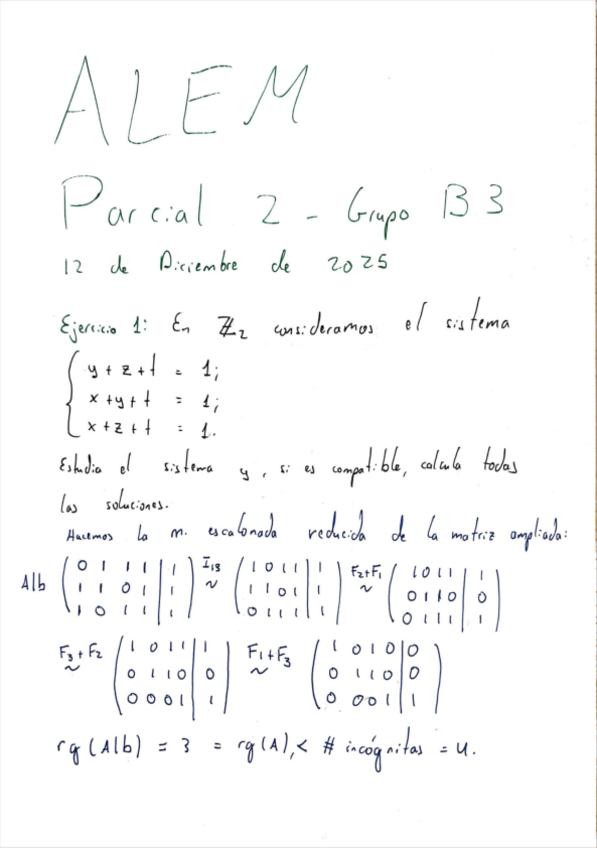 ALEM
Parcial 2 - Grupo B3
12 de Diciembre de 2025
Ejercicio 1: En ℤ₂ consideramos el sistema
y + z + t = 1;
x + y + t = 1;
x + z + t = 1.
Estudia el sistema y, si es compatible, calcula todas
las soluciones.
Hacemos la m. escalonada reducida de la matriz ampliada:
A|b ( 0 1 1 1 | 1 ) I₁₃ ~ ( 1 0 1 1 | 1 ) F₂+F₁ ~ ( 1 0 1 1 | 1 )
( 1 1 0 1 | 1 ) ( 1 1 0 1 | 1 ) ( 0 1 1 0 | 0 )
( 1 0 1 1 | 1 ) ( 0 1 1 1 | 1 ) ( 0 1 1 1 | 1 )
F₃+F₂ ~ ( 1 0 1 1 | 1 ) F₁+F₃ ~ ( 1 0 1 0 | 0 )
( 0 1 1 0 | 0 ) ( 0 1 1 0 | 0 )
( 0 0 0 1 | 1 ) ( 0 0 0 1 | 1 )
rg(A|b) = 3 = rg(A), < # incógnitas = 4.